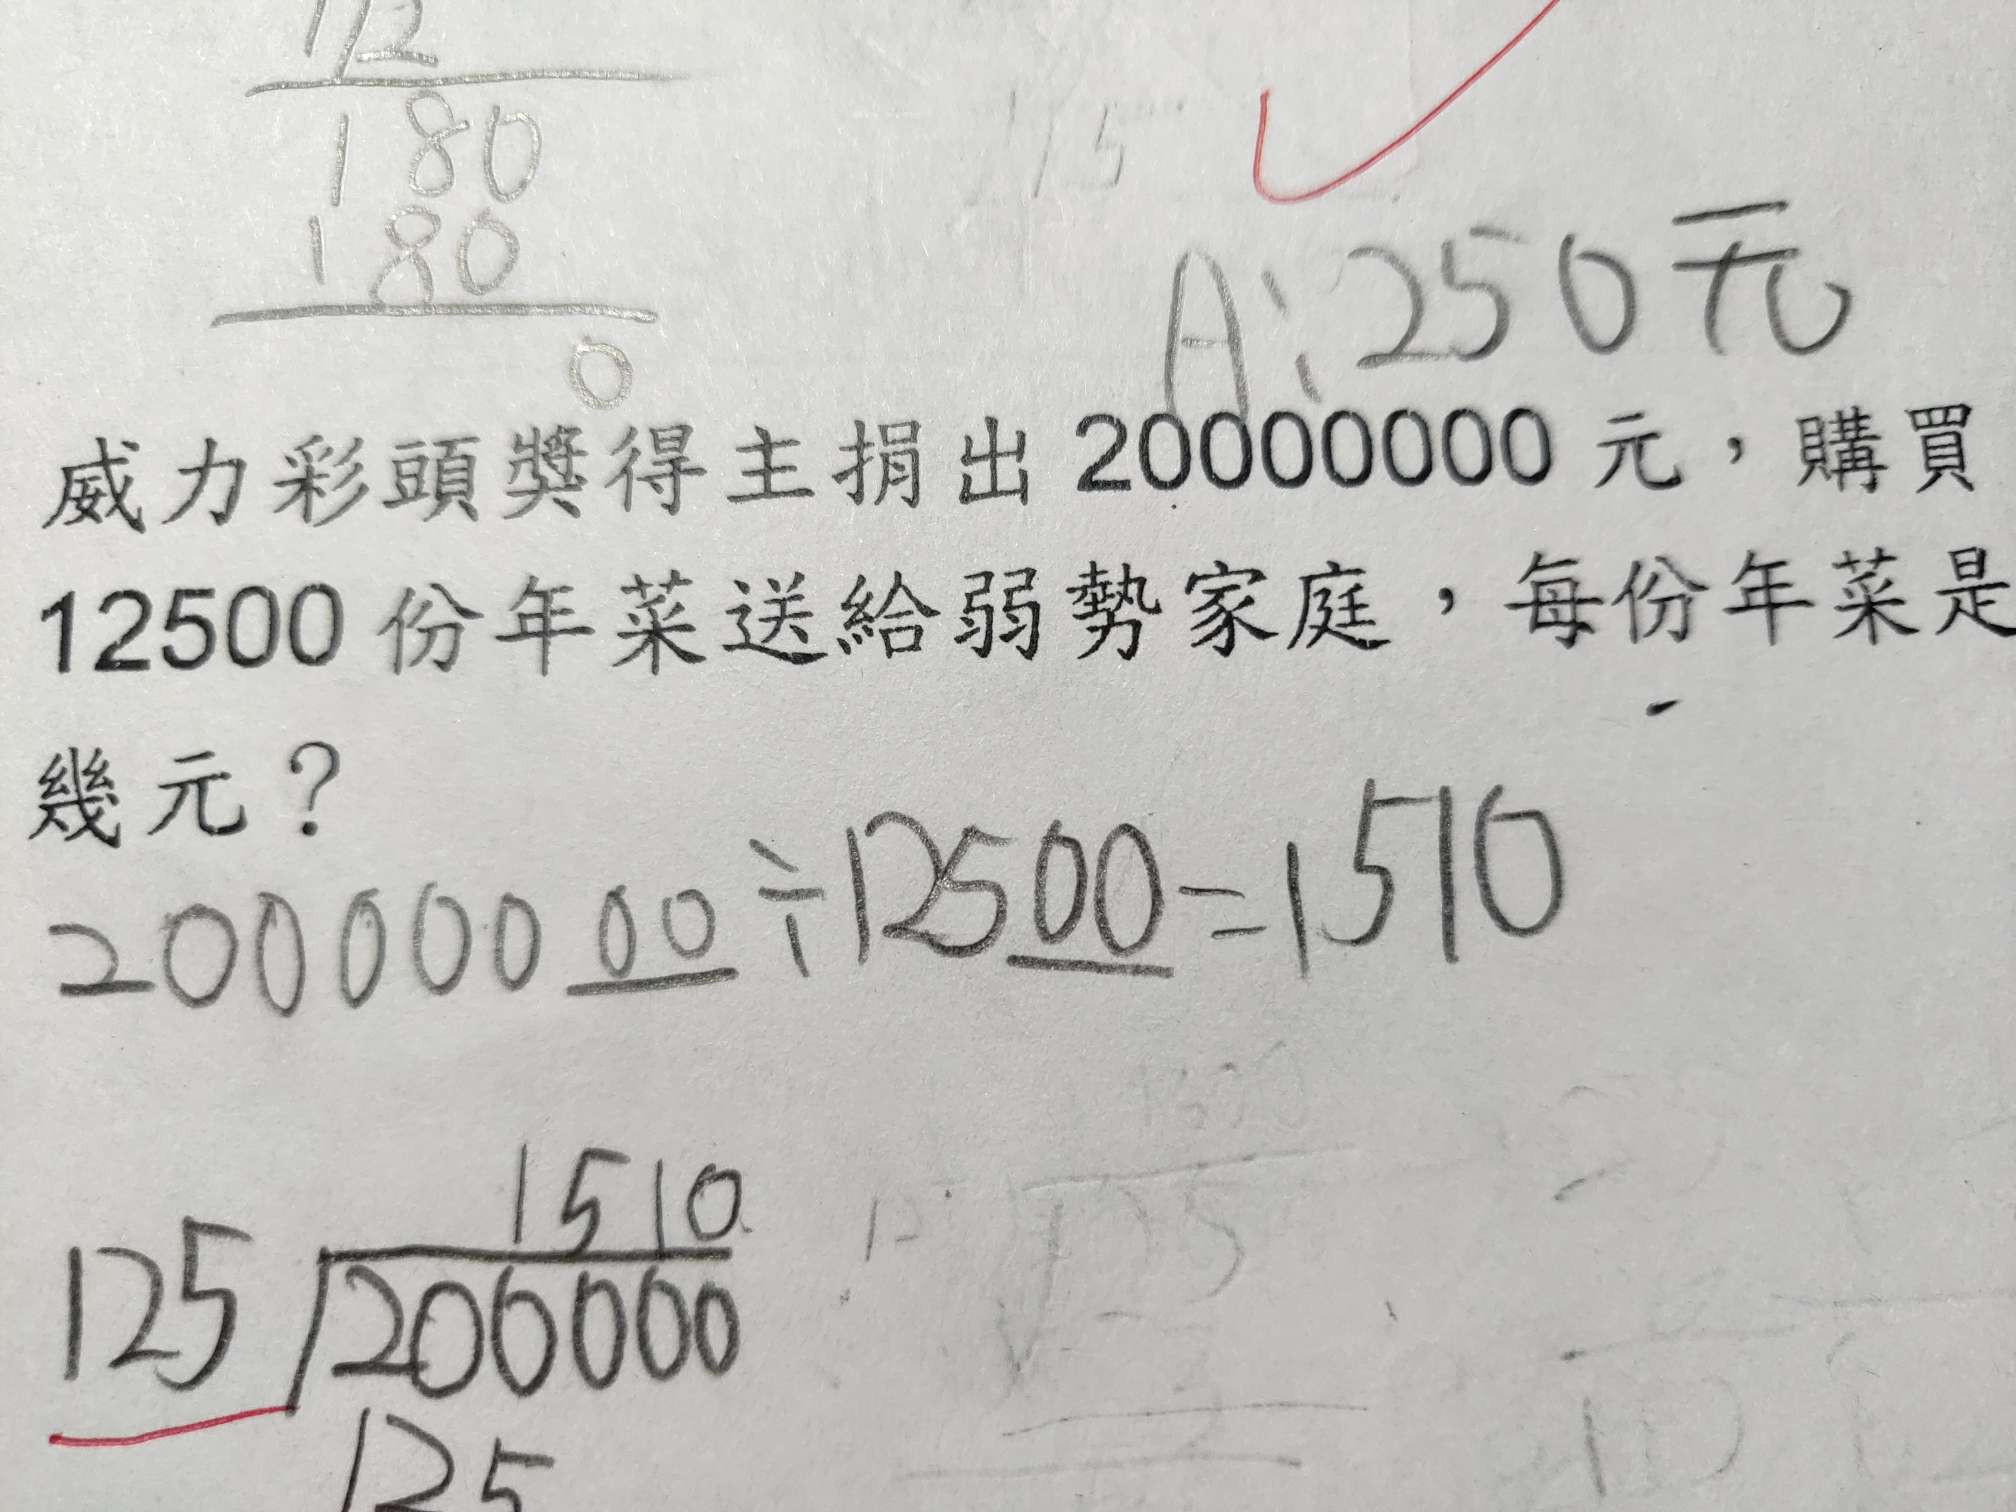 180
180
A:250元
0
威力彩頭獎得主捐出20000000元，購買
12500份年菜送給弱勢家庭，每份年菜是
幾元？
20000000÷12500=1510
1510
125 200000
125